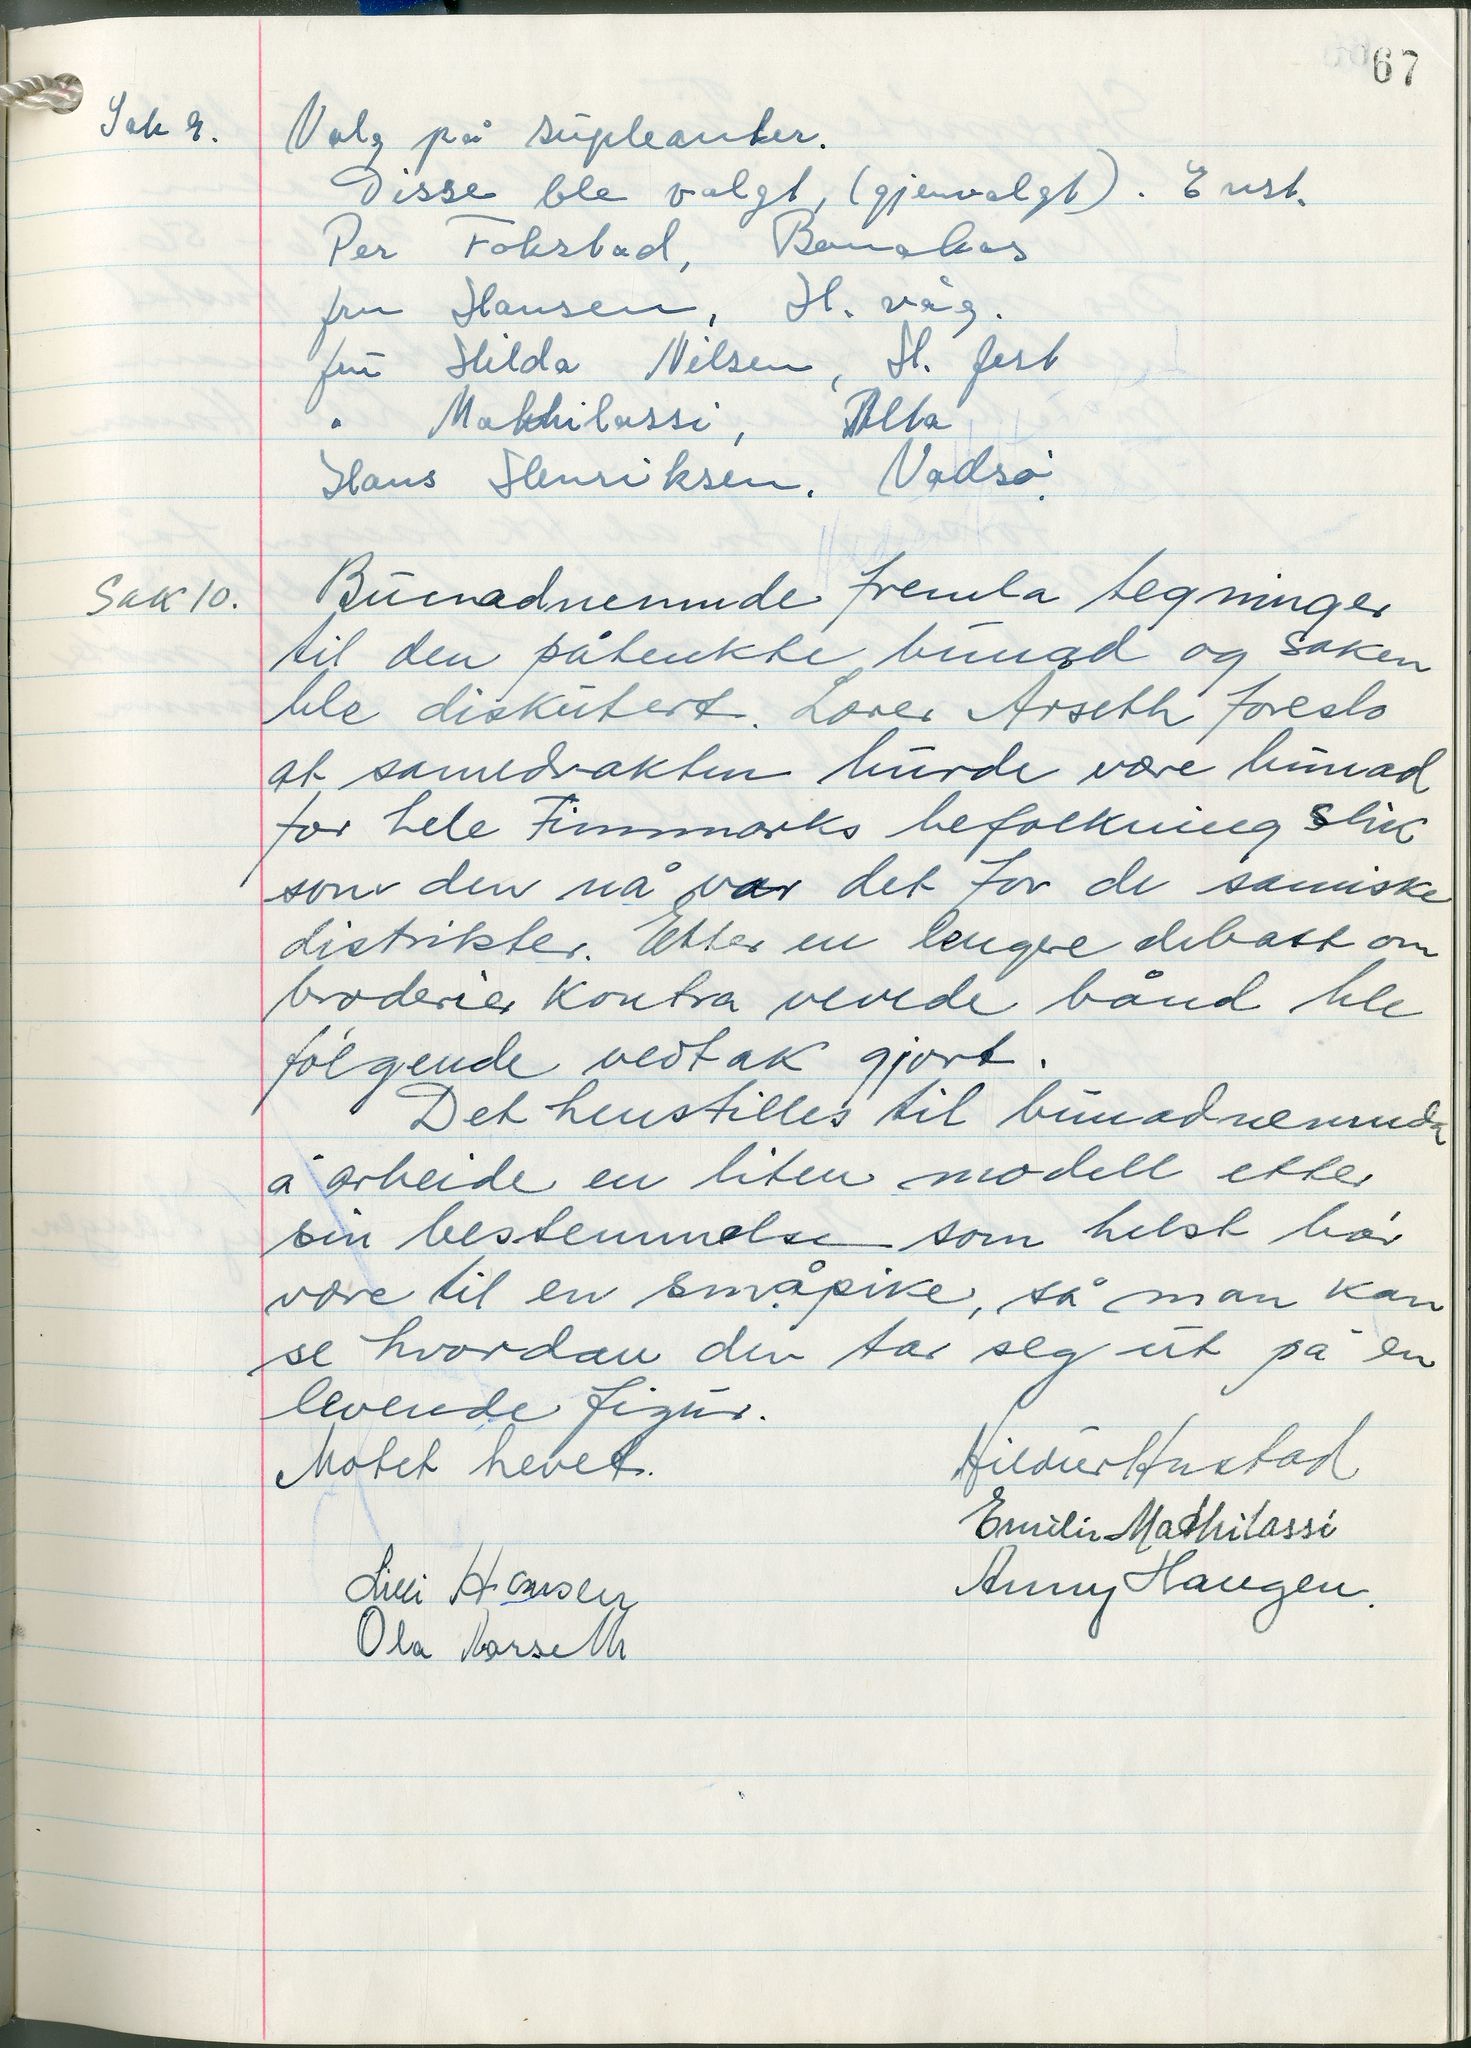 67
Sak 9. Valg på supleanter.
Disse ble valgt, (gjenvalgt). Enst.
Per Fokstad, Bonakas
fru Hansen, H. våg.
fru Hilda Nilsen, H. fest
" Mathilassi, Alta
Hans Henriksen. Vadsø.
Sak 10. Bunadnemnde fremla tegninger
til den påtenkte bunad og saken
ble diskutert. Lærer Arseth foreslo
at samedrakten burde være bunad
for hele Finnmarks befolkning slik
som den nå var det for de samiske
distrikter. Etter en lengere debatt om
broderier kontra vevede bånd ble
følgende vedtak gjort.
Det henstilles til bunadnemnda
å arbeide en liten modell etter
sin bestemmelse som helst bør
være til en småpike, så man kan
se hvordan den tar seg ut på en
levende figur.
Møtet hevet.
Hildur Hustad
Emilie Mathilassi
Lilli Hansen Anny Haugen.
Ola Aarseth